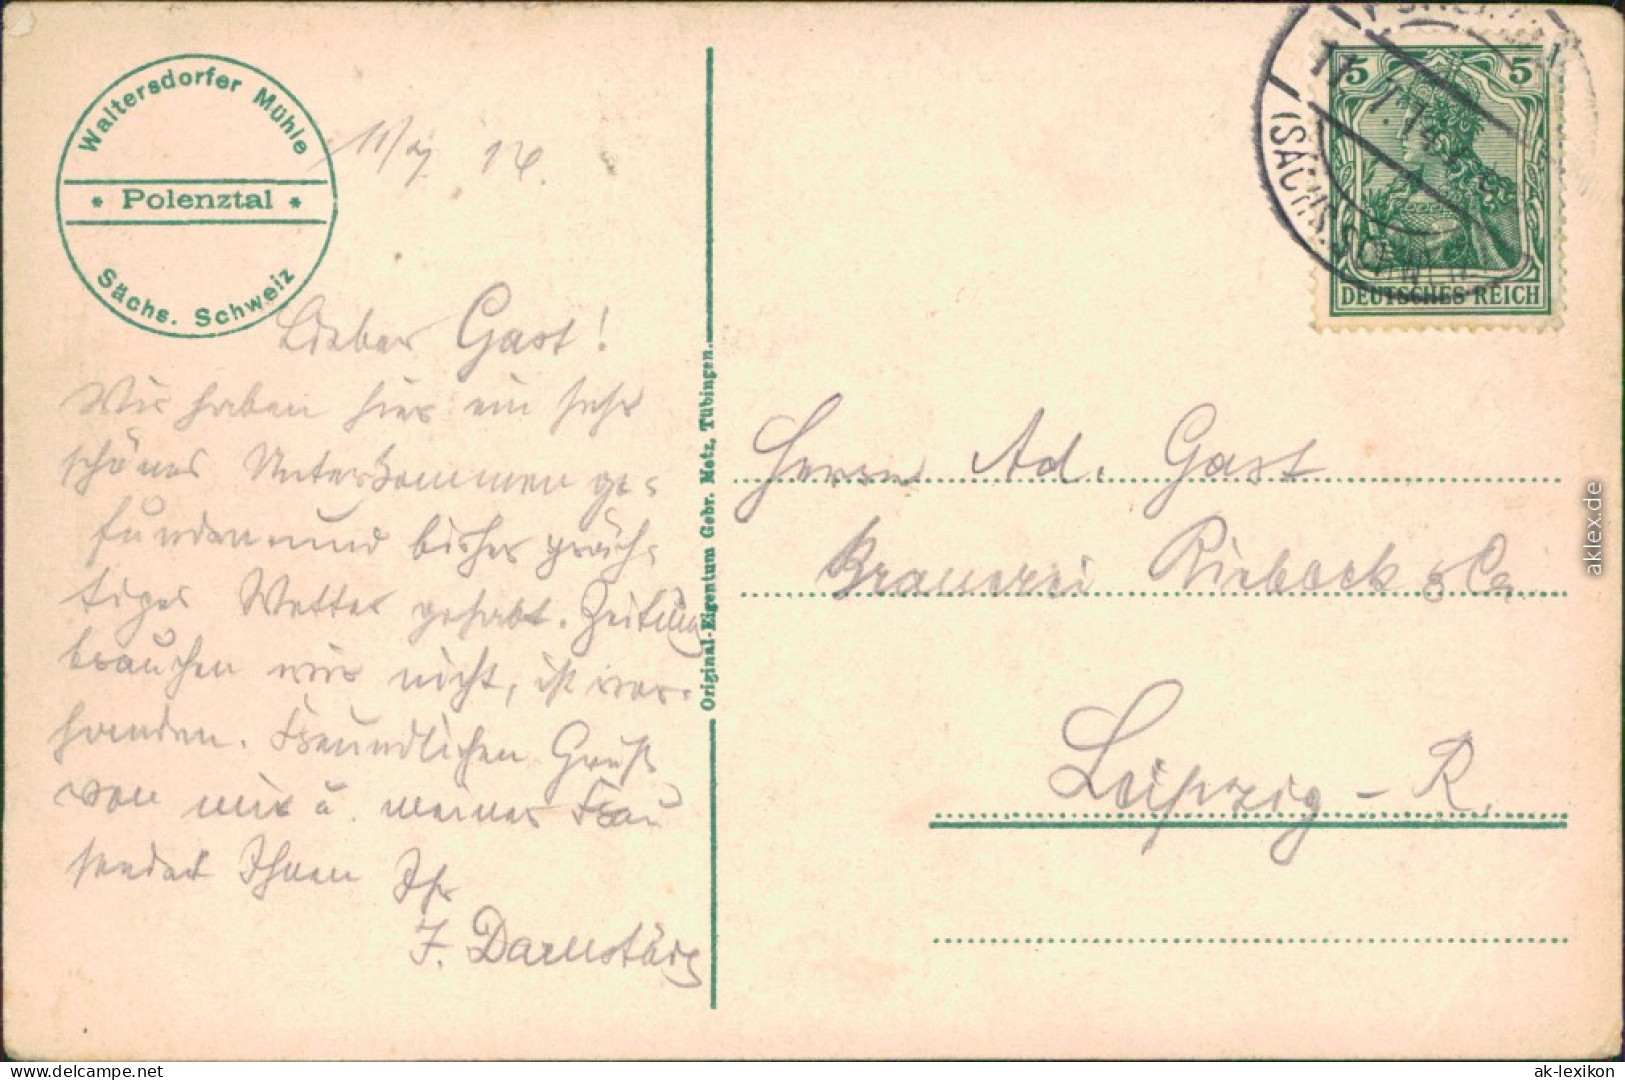 Waltersdorfer Mühle
* Polenztal *
Sächs. Schweiz
11/7. 14.
Lieber Gast!
Wir haben hier ein sehr
schönes Unterkommen ge-
funden und bisher präch-
tiges Wetter gehabt. Zeitung
brauchen wir nicht, ist vor-
handen. Freundlichen Gruß
von mir u. meiner Frau
sendet Ihnen Ihr
F.
Original-Eigentum Gebr. Metz, Tübingen.
5 5
DEUTSCHES REICH
11.7.14.
(SÄCHS. SCHWEIZ
Herrn Ad. Gast
Brauerei Riebeck & Co
Leipzig - R.
aklex.de
delcampe.net
ak-lexikon